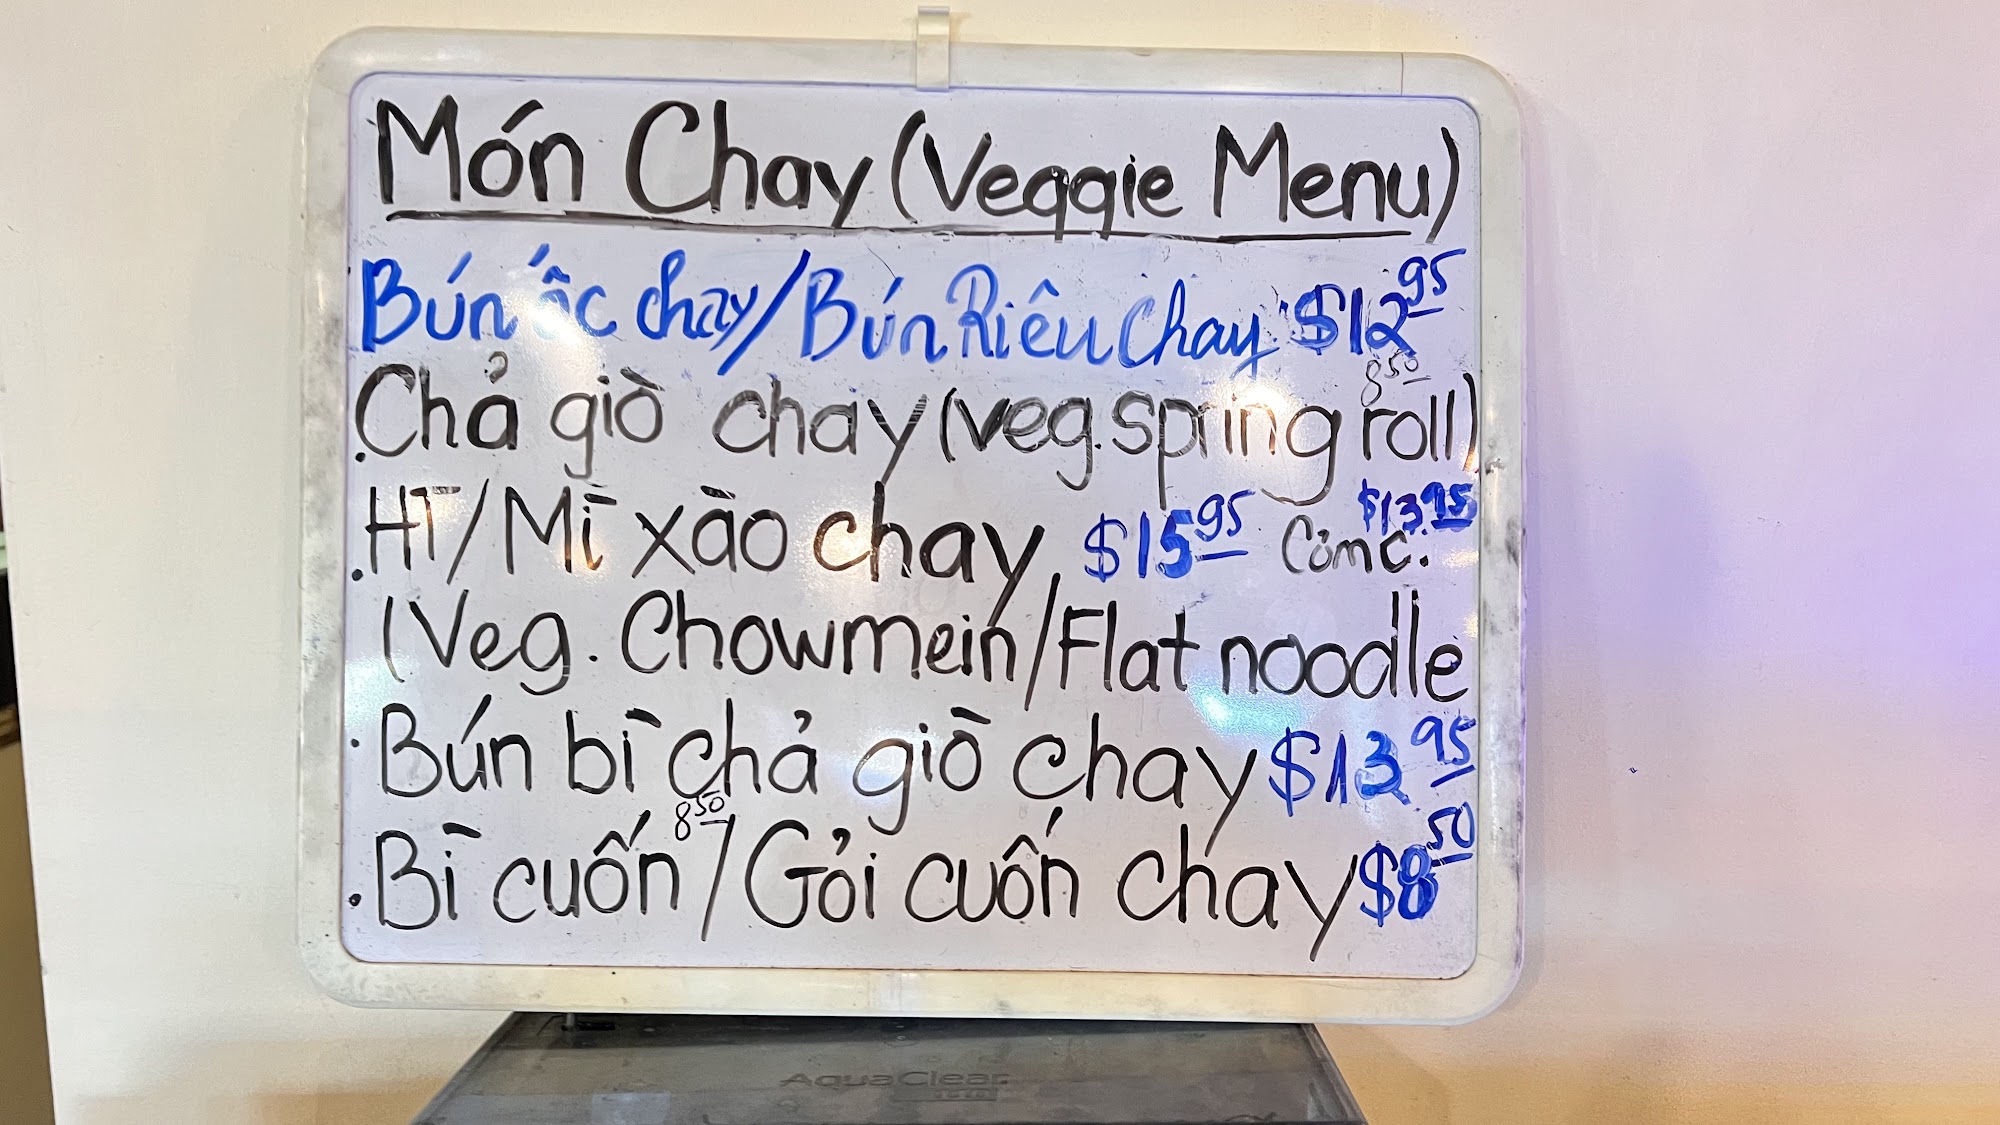 Món Chay (Veggie Menu)
. Bún ốc chay / Bún Riêu Chay: $12 95
8 50
. Chả giò chay (veg. spring roll)
. HT / Mì xào chay, $15 95 Cơm c. $13.95
(Veg. Chowmein / Flat noodle
. Bún bì chả giò chay $13 95
. Bì cuốn 8 50 / Gỏi cuốn chay $8 50
AquaClear